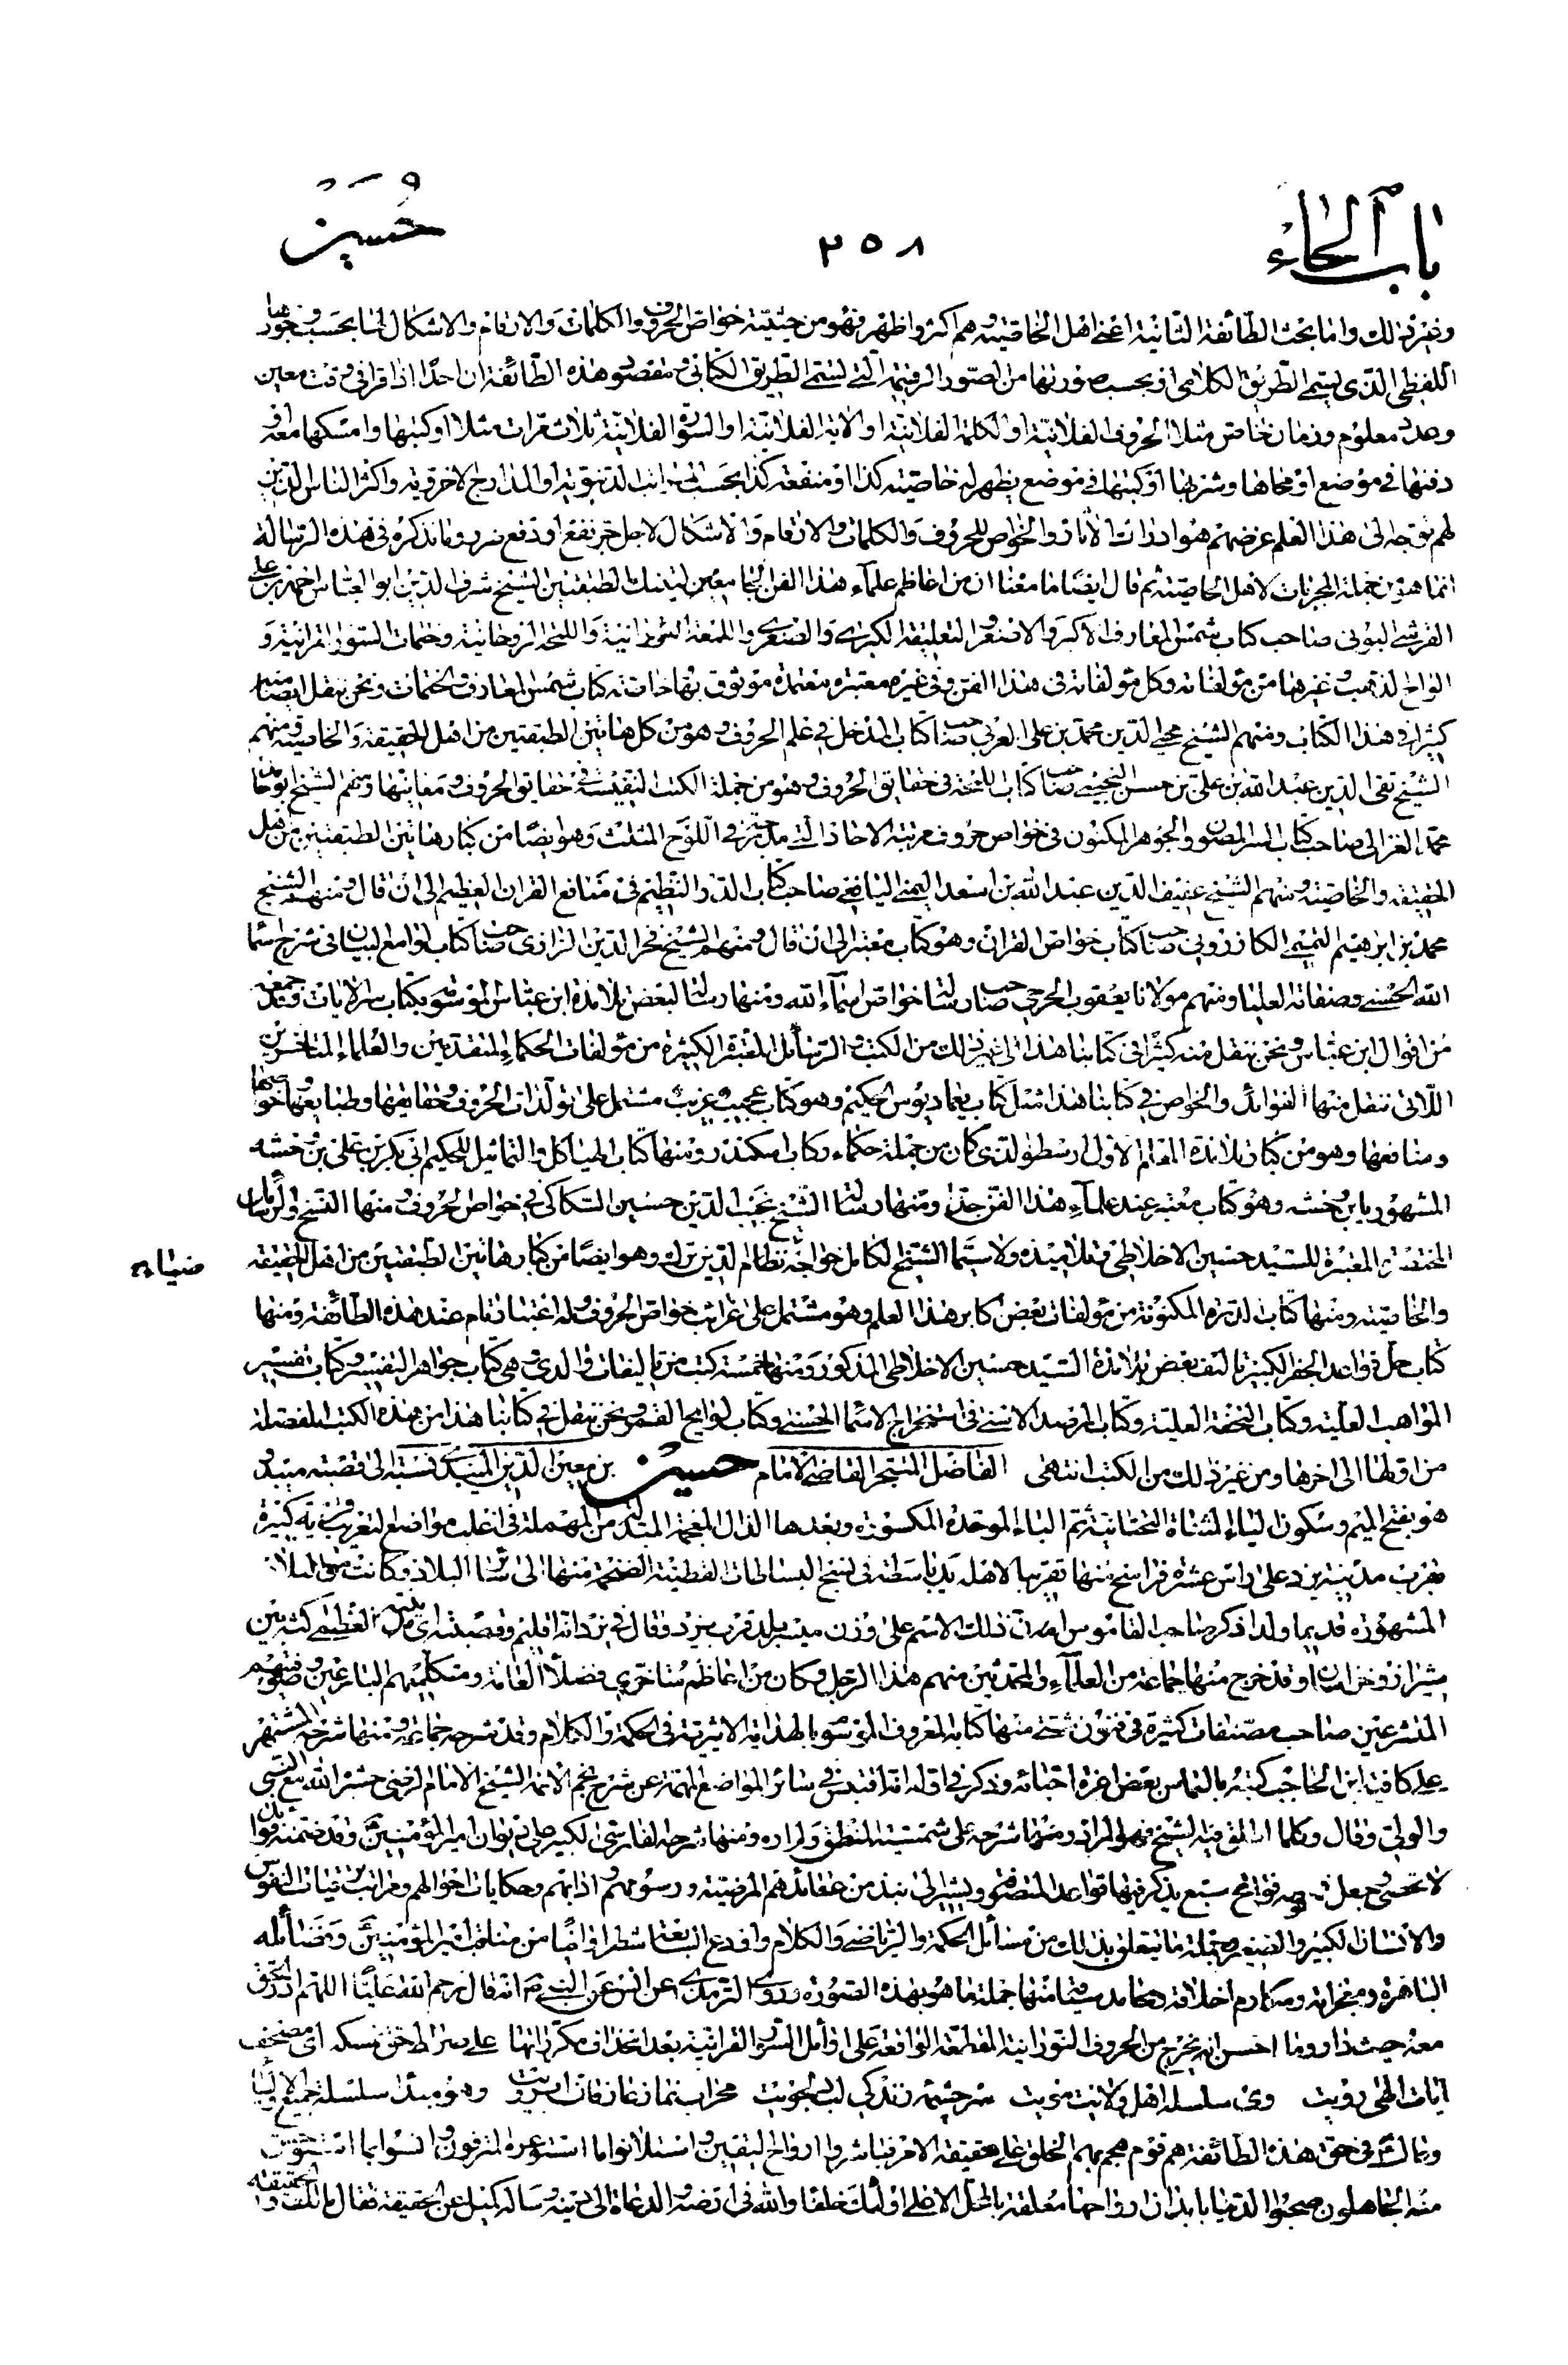 باب الحاء
٢٥٨
حسين
وغير ذلك واما بحث الطائفة الثانية اعنى اهل الخاصية وهم اكثر واظهر فهو من حيثية خواص الحروف والكلمات والارقام والاشكال اما بحسب وجودها
اللفظى الذى يسمى الطريق الكلامى او بحسب صورتها من الصور الرقمية التى تسمى الطريق الكتابى ومقصود هذه الطائفة ان احدا اذا قرأ فى وقت معين
وعدد معلوم وزمان خاص مثلا الحروف الفلانية او الكلمة الفلانية او الاية الفلانية او السورة الفلانية ثلاث مرات مثلا او كتبها وامسكها معه او
دفنها فى موضع او محاها وشربها او كتبها فى موضع يظهر له خاصية كذا او منفعة كذا بحسب المراتب الدنيوية او المدارج الاخروية واكثر الناس الذين
لهم توجه الى هذا العلم غرضهم هو ادراك الاثار والخواص للحروف والكلمات والارقام والاشكال لاجل جر نفع او دفع ضرر وما نذكره فى هذه الرسالة
انما هو من جملة المجربات لاهل الخاصية ثم قال ايضا ما معناه ان من اعاظم علماء هذا الفن الجامعين لتينك الطبقتين الشيخ شرف الدين ابو العباس احمد بن على
القرشى البونى صاحب كتاب شمس المعارف الاكبر والاصغر والتعليقة الكبرى والصغرى واللمعة النورانية واللمحة الروحانية وختمات السور القرانية و
الواح الذهب وغيرها من مؤلفاته وكل مؤلفاته فى هذا الفن وفى غيره معتبرة معتمدة موثوق بها خاصة كتاب شمس المعارف والختمات ونحن ننقل ايضا منه
كثيرا فى هذا الكتاب ومنهم الشيخ محيى الدين محمد بن على العربى صاحب كتاب المدخل فى علم الحروف وهو من كل هاتين الطبقتين من اهل الحقيقة والخاصية ومنهم
الشيخ تقى الدين عبد الله بن على بن حسن صاحب كتاب اللمعة فى حقايق الحروف وهو من جملة الكتب النفيسة فى حقايق الحروف ومعانيها ومنهم الشيخ ابو حامد
محمد الغزالى صاحب كتاب السر المصون والجوهر المكنون فى خواص حروف مرتبة الاحاد التى فى اللوح المثلث وهو ايضا من كبار هاتين الطبقتين من اهل
الحقيقة والخاصية ومنهم الشيخ عفيف الدين عبد الله بن اسعد اليمنى اليافعى صاحب كتاب الدر النظيم فى منافع القران العظيم الى ان قال ومنهم الشيخ
محمد بن ابرهيم التميمى الكازرونى صاحب كتاب خواص القران وهو كتاب معتبر الى ان قال ومنهم الشيخ فخر الدين الرازى صاحب كتاب لوامع البيان فى شرح اسماء
الله الحسنى وصفاته العليا ومنهم مولانا يعقوب الجرخى صاحب رسالة خواص اسماء الله ومنها رسالة لبعض تلامذة ابن عباس الموسوم بكتاب سر الايات وقد جمعه
من اقوال ابن عباس ونحن ننقل منه كثيرا فى كتابنا هذا الى غير ذلك من الكتب والرسائل المعتبرة الكثيرة من مؤلفات الحكماء المتقدمين والعلماء المتاخرين
اللاتى ننقل منها الفوائد والخواص فى كتابنا هذا مثل كتاب الحكيم وهو كتاب عجيب غريب مشتمل على تولدات الحروف وحقايقها وطبايعها وخواصها
ومنافعها وهو من كبار تلامذة المعلم الاول ارسطو الذى كان من جملة حكماء ركاب اسكندر ومنها كتاب الهياكل والتماثيل للحكيم ابى بكر بن على بن وحشه
المشهور بابن وحشه وهو كتاب معتبر عند علماء هذا الفن جدا ومنها رسالة الشيخ نجيب الدين حسين السكاكى فى خواص الحروف ومنها النسخ والرسائل
المعتبرة للسيد حسين الاخلاطى وتلاميذه ولا سيما الشيخ الكامل خواجه نظام الدين وهو ايضا من كبار هاتين الطبقتين من اهل الحقيقة
والخاصية ومنها كتاب الدرة المكنونة من مؤلفات بعض اكابر هذا العلم وهو مشتمل على غرائب خواص الحروف وله اعتبار تام عند هذه الطائفة ومنها
كتاب حل قواعد الجفر الكبير تاليف بعض تلامذة السيد حسين الاخلاطى المذكور ومنها خمسة كتب من تاليفات والدى وهى كتاب جواهر التفسير وكتاب تفسير
المواهب العلية وكتاب التحفة العلية وكتاب المرصد الاسنى فى استخراج الاسماء الحسنى وكتاب لوايح القمر ونحن ننقل فى كتابنا هذا من هذه الكتب المفصلة
من اولها الى اخرها ومن غير ذلك من الكتب انتهى الفاضل المتبحر القاضى الامام حسين بن معين الدين الميبدى نسبته الى قصبة ميبد
هو بفتح الميم وسكون الياء المثناة التحتانية ثم الباء الموحدة المكسورة وبعدها الذال المعجمة المبدلة من المهملة فى اغلب مواضع التعريب قرية كبيرة
بقرب مدينة يزد على راس عشرة فراسخ منها تقريبا لاهلها يد باسطة فى نسج البساطات القطنية الضخمة منها الى سائر البلاد وكانت من البلاد
المشهورة قديما ولذا ذكر صاحب القاموس ان ذلك الاسم على وزن ميسر بلد قرب يزد وقال فى يزد انه اقليم وقصبته بين
شيراز وخراسان وقد خرج منها جماعة من العلماء والمحدثين منهم هذا الرجل وكان من اعاظم متاخرى فضلاء العامة ومتكلميهم البارعين وصوفيتهم
المتشرعين صاحب مصنفات كثيرة فى فنون شتى منها كتابه المعروف الموسوم بالهداية الاثيرية فى الحكمة والكلام وقد شرحه جماعة ومنها شرحه المشتهر
على كافية ابن الحاجب كتبه بالتماس بعض اعزة احبائه وذكر فى اوله انه اقتبس فى سائر المواضع المهمة عن شرح نجم الائمة الشيخ الامام الرضى حشره الله مع النبى
والولى وقال وكلما اطلق فيه الشيخ فهو المراد ومنها شرحه على شمسية المنطق ومنها شرحه الفارسى الكبير على ديوان امير المؤمنين وقد ضمنه فوائد
لا تحصى وجعل له فواتح سبع يذكر فيها قواعد المتصوفة ويشير الى نبذ من عقائدهم المرضية ورسومهم وادابهم وحكايات احوالهم ومراتب ترقيات النفوس
والانسان الكبير والصغير وجملة ما يتعلق بذلك من مسائل الحكمة والرياضى والكلام واودع السابعة شطرا وافيا من مناقب امير المؤمنين وفضائله
الباهرة ومفخراته ومكارم اخلاقه ومحامد منها جملة ما هو بهذه الصورة روى الترمذى عن انس عن النبى ص انه قال رحم الله عليا اللهم ادر الحق
معه حيث دار وما احسن انه يخرج من الحروف النورانية المقطعة الواقعة على اوائل السور القرانية بعد حذف مكرراتها على صراط حق نمسكه اى مصحف
ايات الهى رويت وى سلسله اهل ولايت مويت سرچشمه زندگى لب دلجويت محراب نماز عارفان ابرويت وهو مبدأ سلسلة جميع الاولياء
وقال فى حق هذه الطائفة هم قوم هجم بهم الخلق على حقيقة الامر فباشروا ارواح اليقين واستلانوا ما استوعره المترفون وانسوا بما استوحش
منه الجاهلون صحبوا الدنيا بابدان ارواحها معلقة بالمحل الاعلى اولئك خلفاء الله فى ارضه والدعاة الى دينه وساله كميل عن الحقيقة فقال مالك والحقيقة